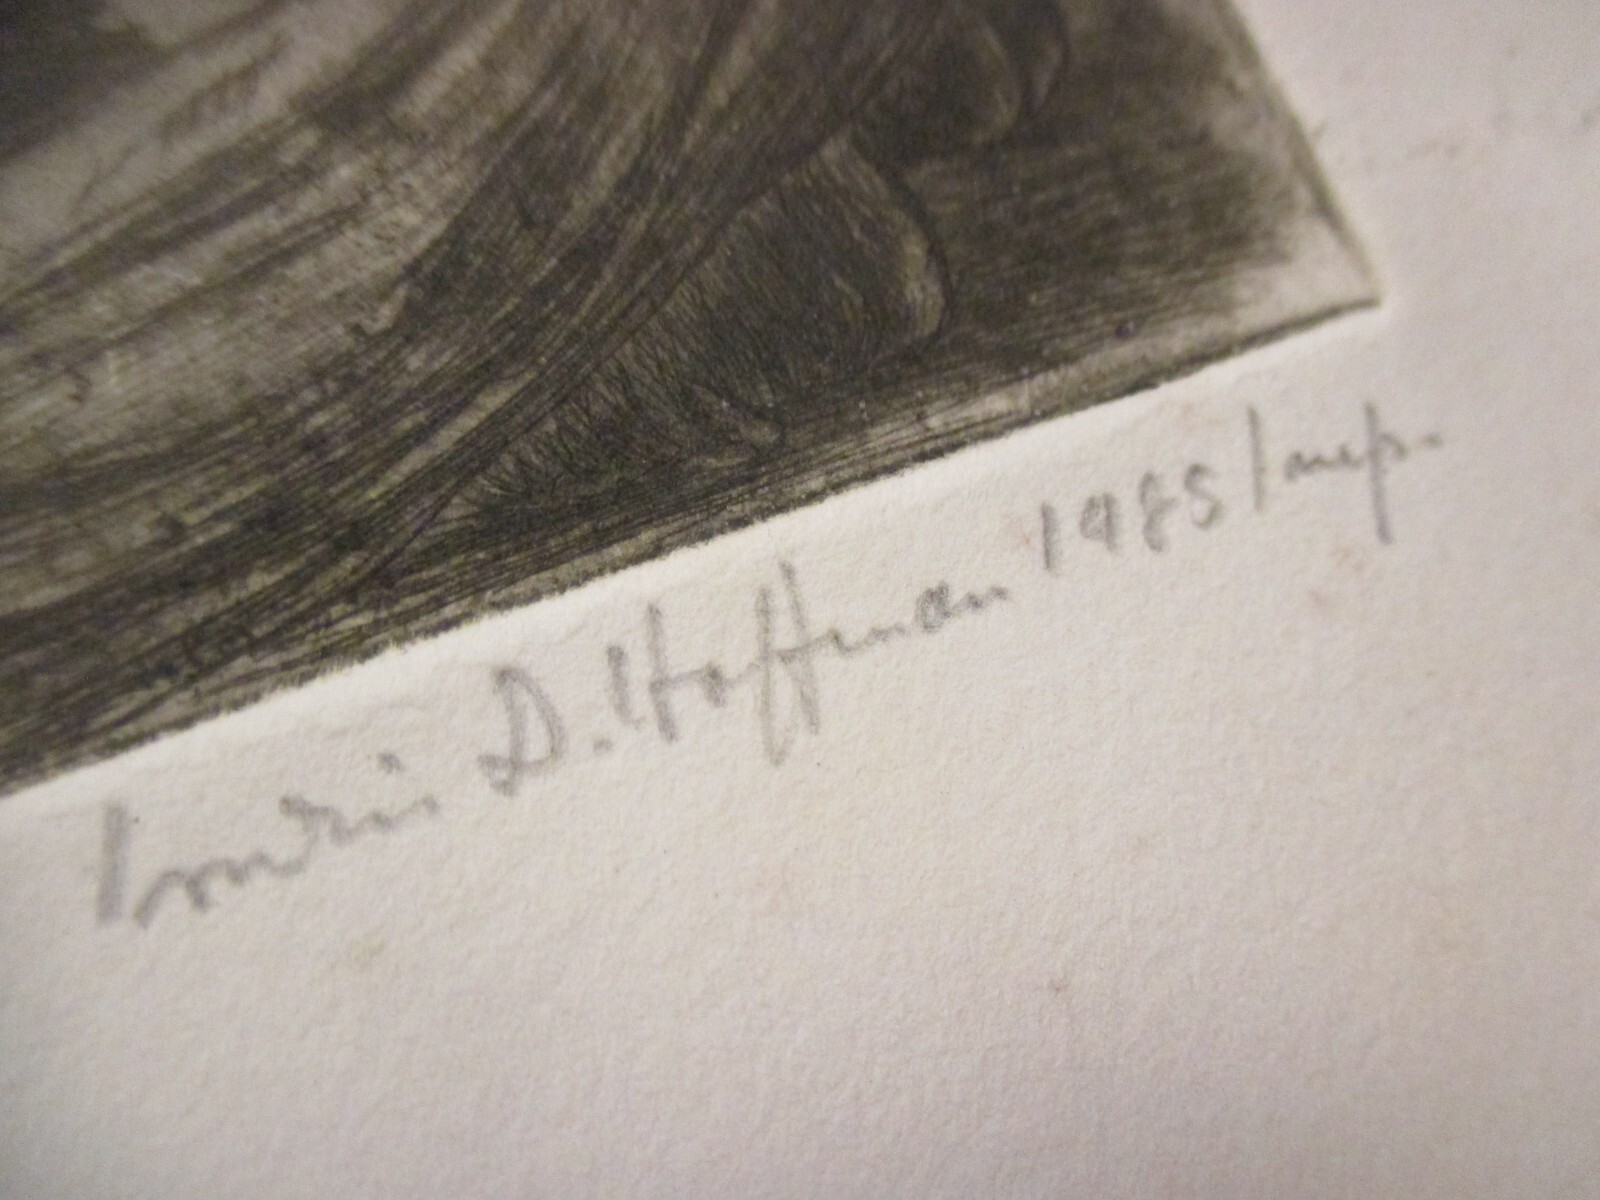 Irwin D. Hoffman 1985/imp.